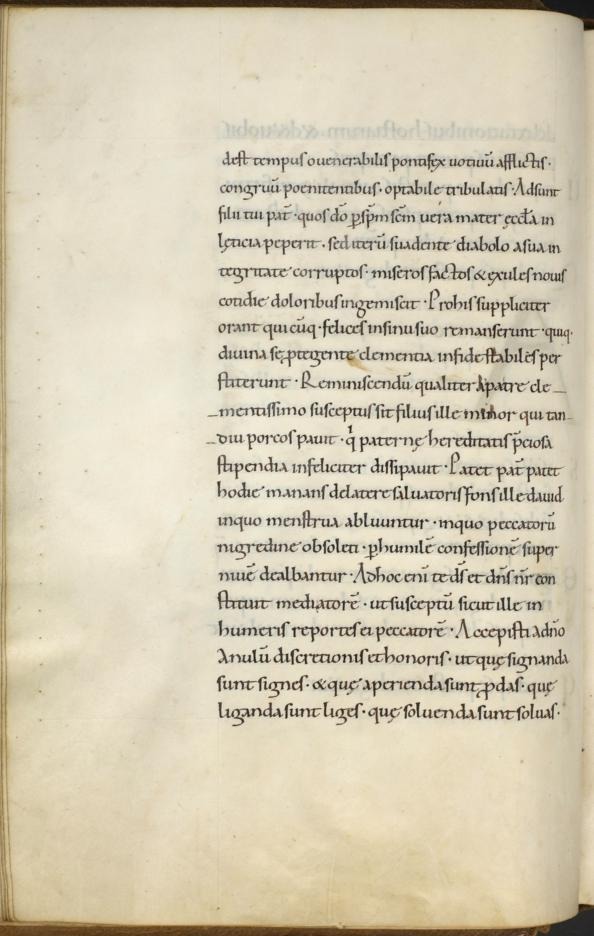 dest tempus o uenerabilis pontifex uotiuū afflictis·
congruū poenitentibus· optabile tribulatis· Adsunt
filii tui pat̄· quos dō p̱ sp̄m sc̄m uera mater ęccła in
lęticia peperit· sed iterū suadente diabolo a sua in
tegritate corruptos· miseros factos & exules nouis
cotidie doloribus ingemiscit· Pro his suppliciter
orant quicūq· felices in sinu suo remanserunt· quiq·
diuina se ꝓtegente clementia in fide stabiles per
stiterunt· Reminiscendū qualiter a patre cle
mentissimo susceptus sit filius ille minor qui tan
diu porcos pauit· q̄ paternę hereditatis p̄ciosa
stipendia infeliciter dissipauit· Patet pat̄ patet
hodie manans de latere saluatoris fons ille dauid
in quo menstrua abluuntur· in quo peccatorū
nigredine obsoleti· p̱ humilē confessionē super
niuē dealbantur· Ad hoc enī te ds̄ et dn̄s nr̄ con
stituit mediatorē· ut susceptū sicut ille in
humeris reportes ei peccatorē· Accepisti a dn̄o
anulū discretionis et honoris· ut quę signanda
sunt signes· & quę aperienda sunt ꝓdas· quę
liganda sunt liges· quę soluenda sunt soluas·